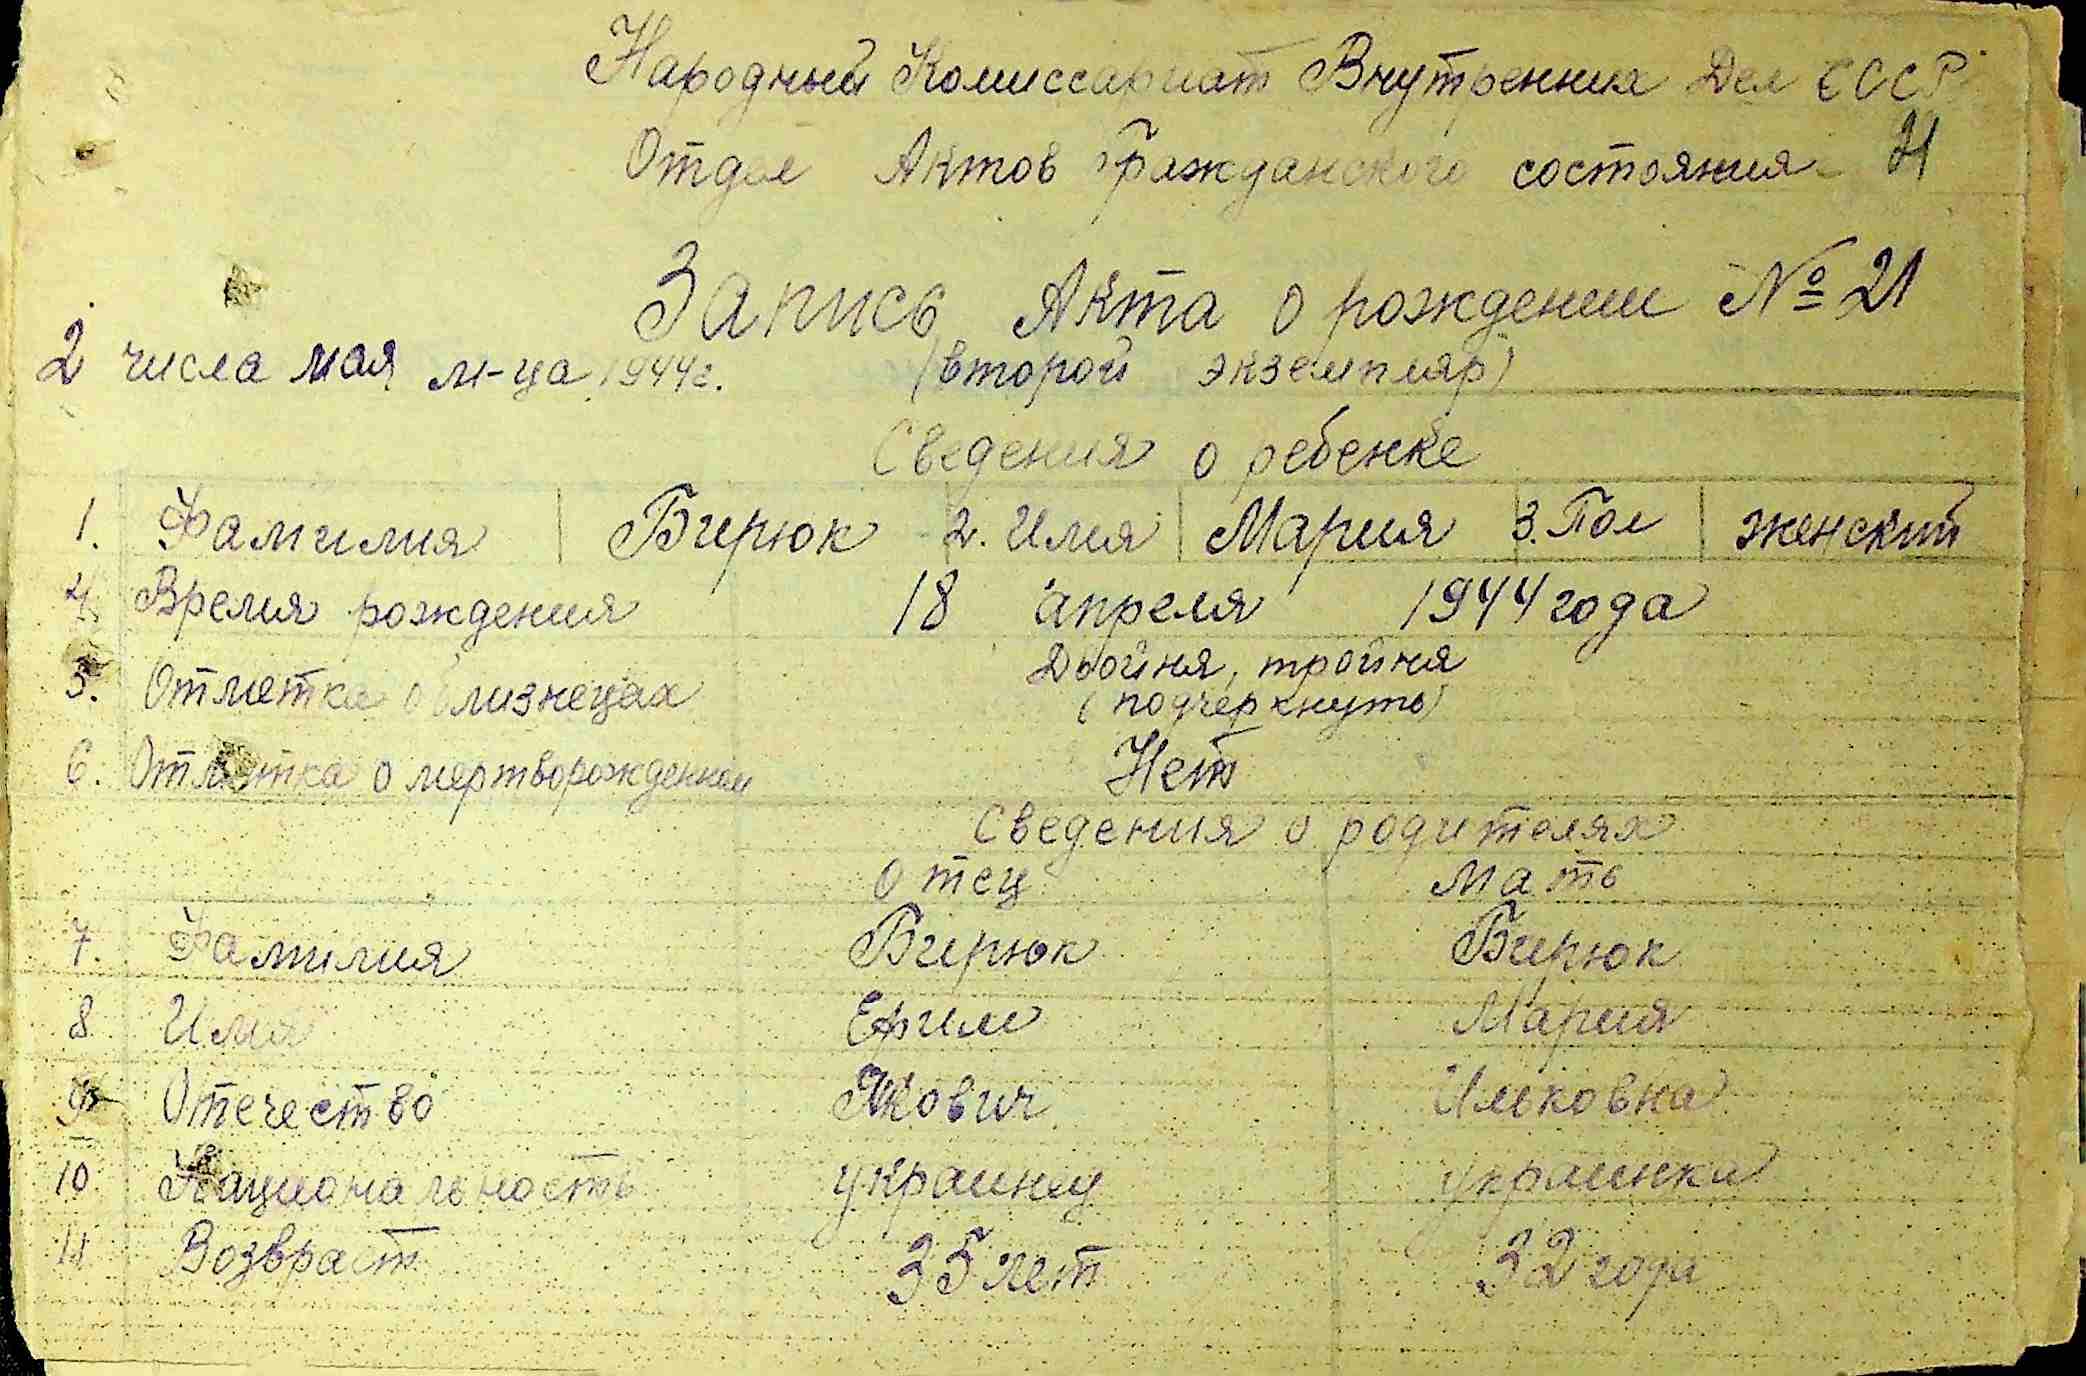 Народный Комиссариат Внутренних Дел СССР
Отдел Актов Гражданского состояния 21
Запись Акта о рождении № 21
2 числа мая м-ца 1944г. (второй экземпляр)
Сведения о ребенке
1. Фамилия Бирюк 2. Имя Мария 3. Пол женский
4. Время рождения 18 апреля 1944 года
5. Отметка о близнецах Двойня, тройня
(подчеркнуть)
6. Отметка о мертворожденном Нет
Сведения о родителях
Отец Мать
7. Фамилия Бирюк Бирюк
8 Имя Ефим Мария
9 Отечество Якович Ильковна
10 Национальность украинец украинка
11 Возвраст 35 лет 32 года